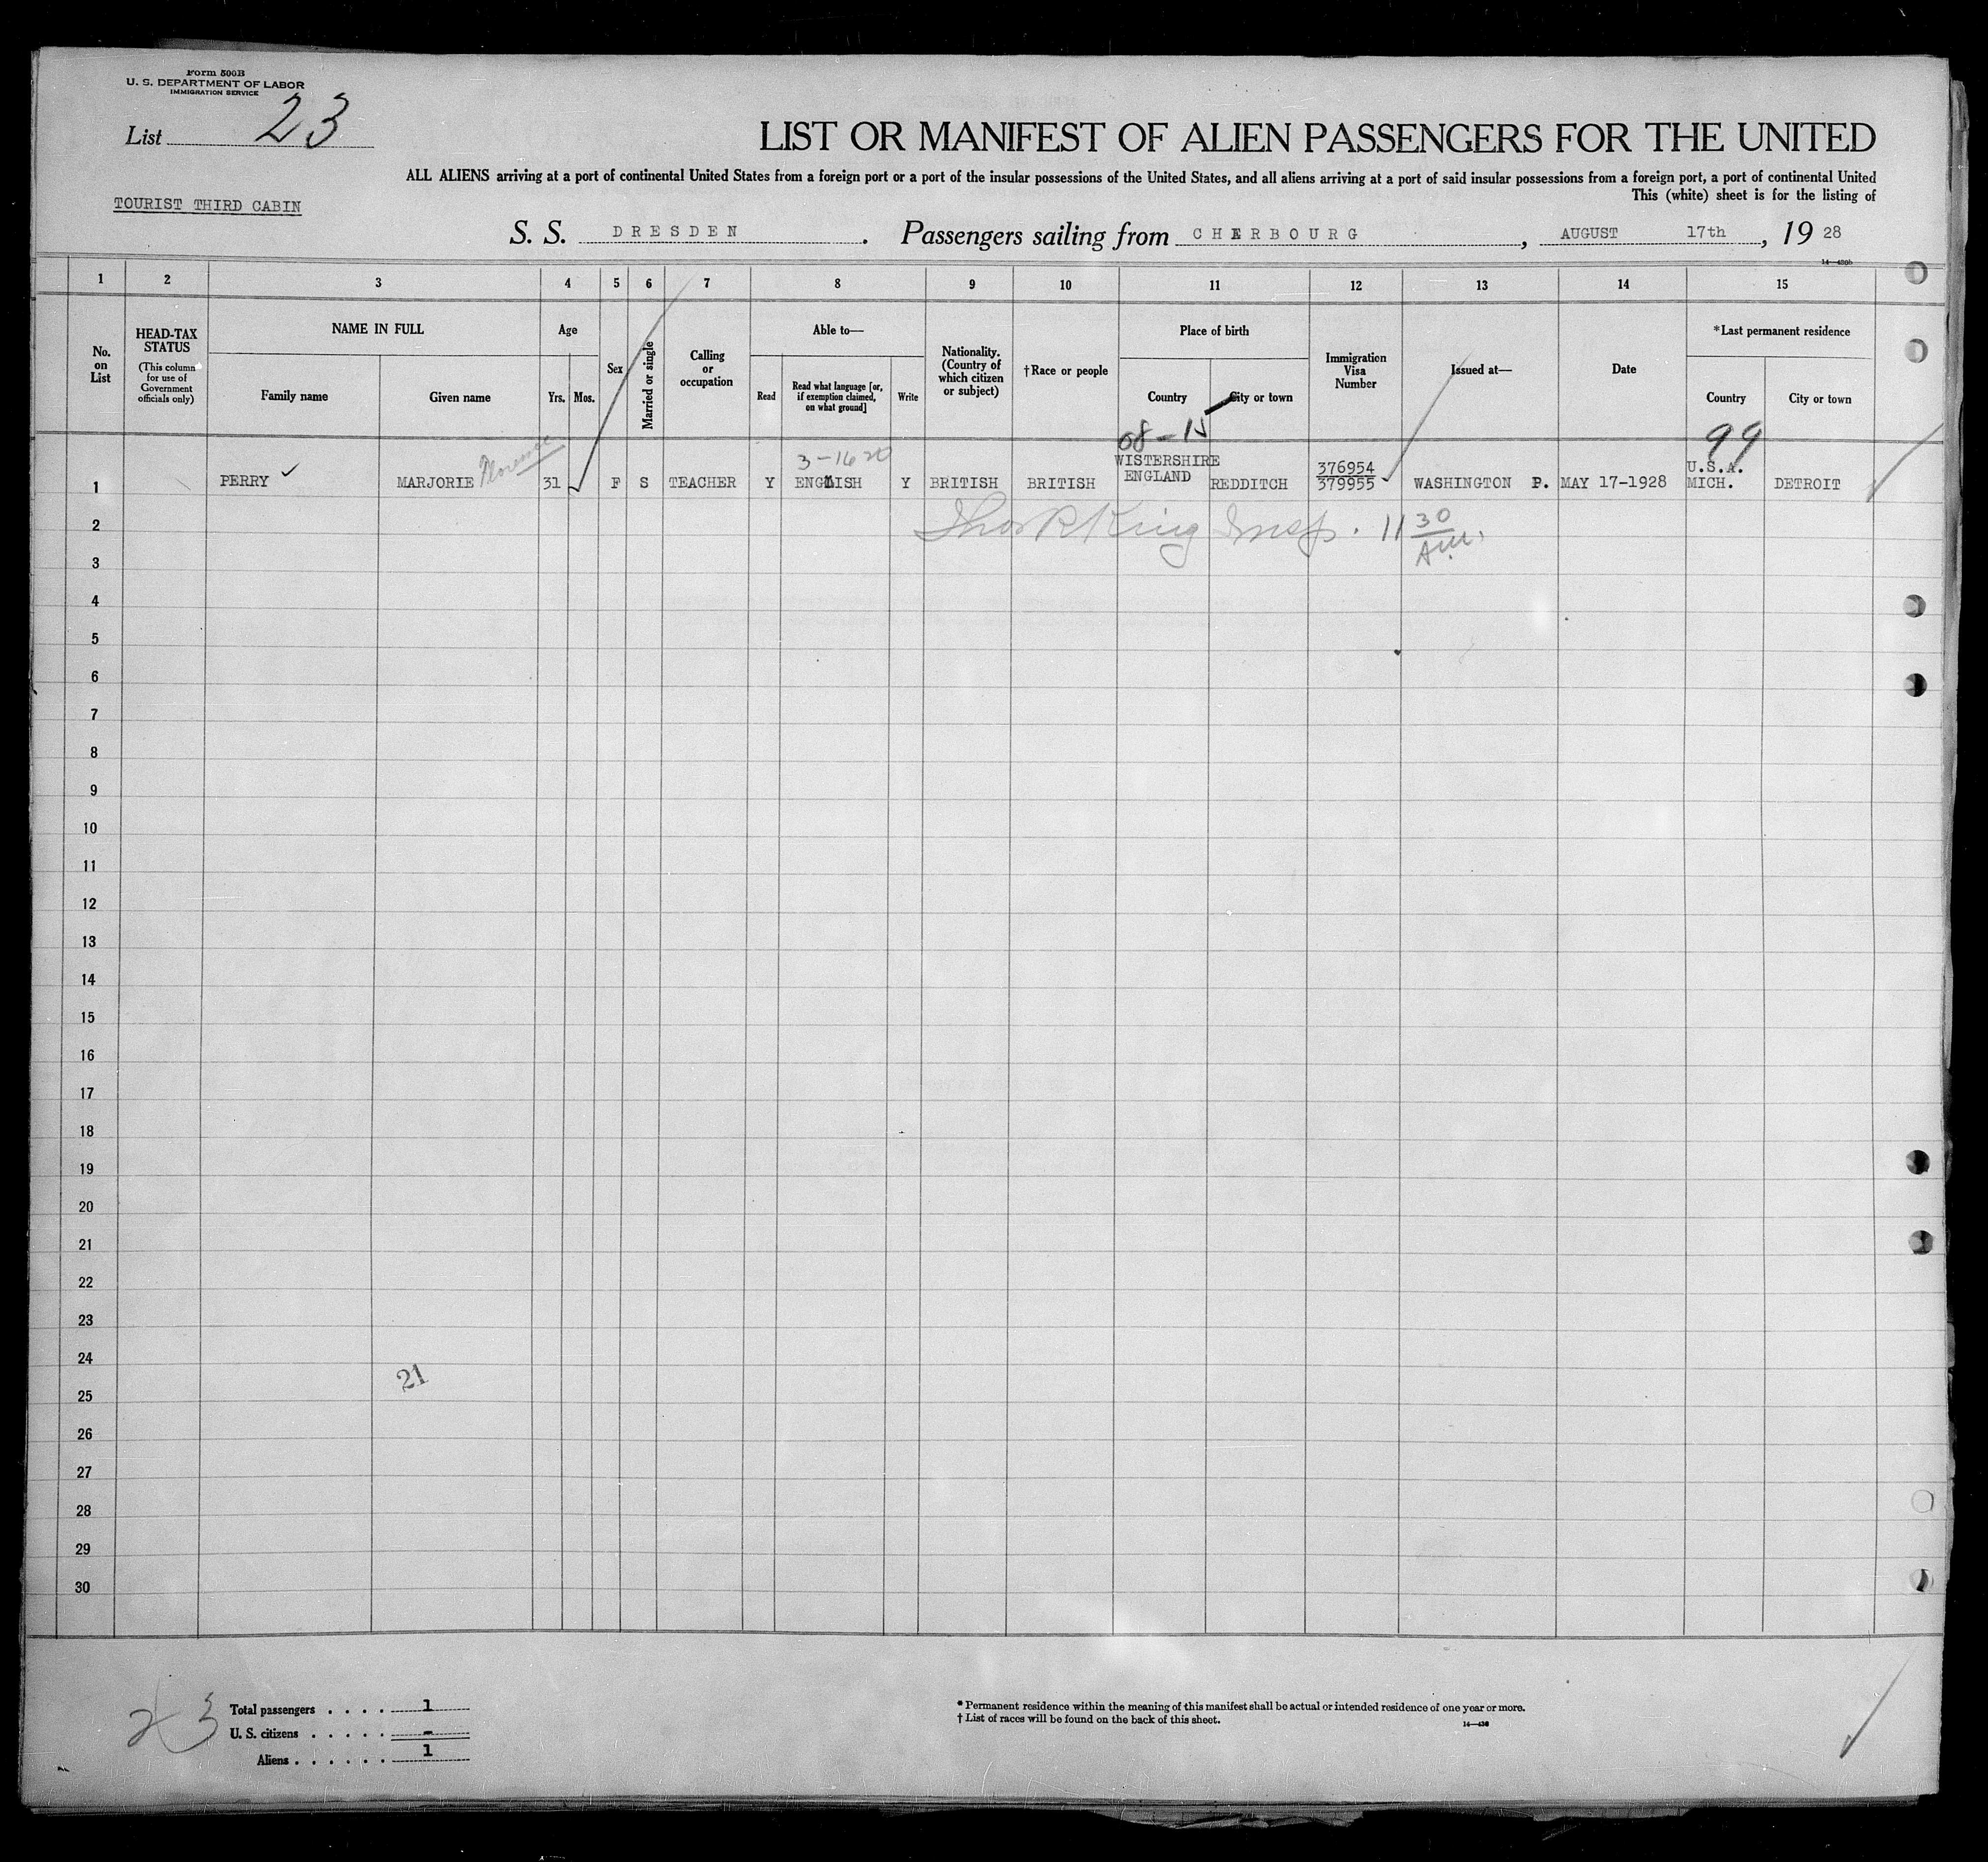 Form 500B
U. S. DEPARTMENT OF LABOR
IMMIGRATION SERVICE
List 23
LIST OR MANIFEST OF ALIEN PASSENGERS FOR THE UNITED
ALL ALIENS arriving at a port of continental United States from a foreign port or a port of the insular possessions of the United States, and all aliens arriving at a port of said insular possessions from a foreign port, a port of continental United
This (white) sheet is for the listing of
TOURIST THIRD CABIN
S. S. DRESDEN. Passengers sailing from CHERBOURG, AUGUST 17th, 19 28
1 2 3 4 5 6 7 8 9 10 11 12 13 14 15
No. on List
HEAD-TAX STATUS
(This column for use of Government officials only)
NAME IN FULL
Family name
Given name
Age
Yrs. Mos.
Sex
Married or single
Calling or occupation
Able to—
Read
Read what language [or, if exemption claimed, on what ground]
Write
Nationality. (Country of which citizen or subject)
†Race or people
Place of birth
Country
City or town
Immigration Visa Number
Issued at—
Date
*Last permanent residence
Country
City or town
08-15
99
3-1620
1 PERRY MARJORIE Florence 31 F S TEACHER Y ENGLISH Y BRITISH BRITISH WISTERSHIRE ENGLAND REDDITCH 376954 379955 WASHINGTON P. MAY 17-1928 U.S.A. MICH. DETROIT
2 Thos R King Insp. 11 30 A.M.
3
4
5
6
7
8
9
10
11
12
13
14
15
16
17
18
19
20
21
22
23
24
21
25
26
27
28
29
30
23
Total passengers . . . . 1
U. S. citizens . . . . . -
Aliens . . . . . . 1
* Permanent residence within the meaning of this manifest shall be actual or intended residence of one year or more.
† List of races will be found on the back of this sheet.